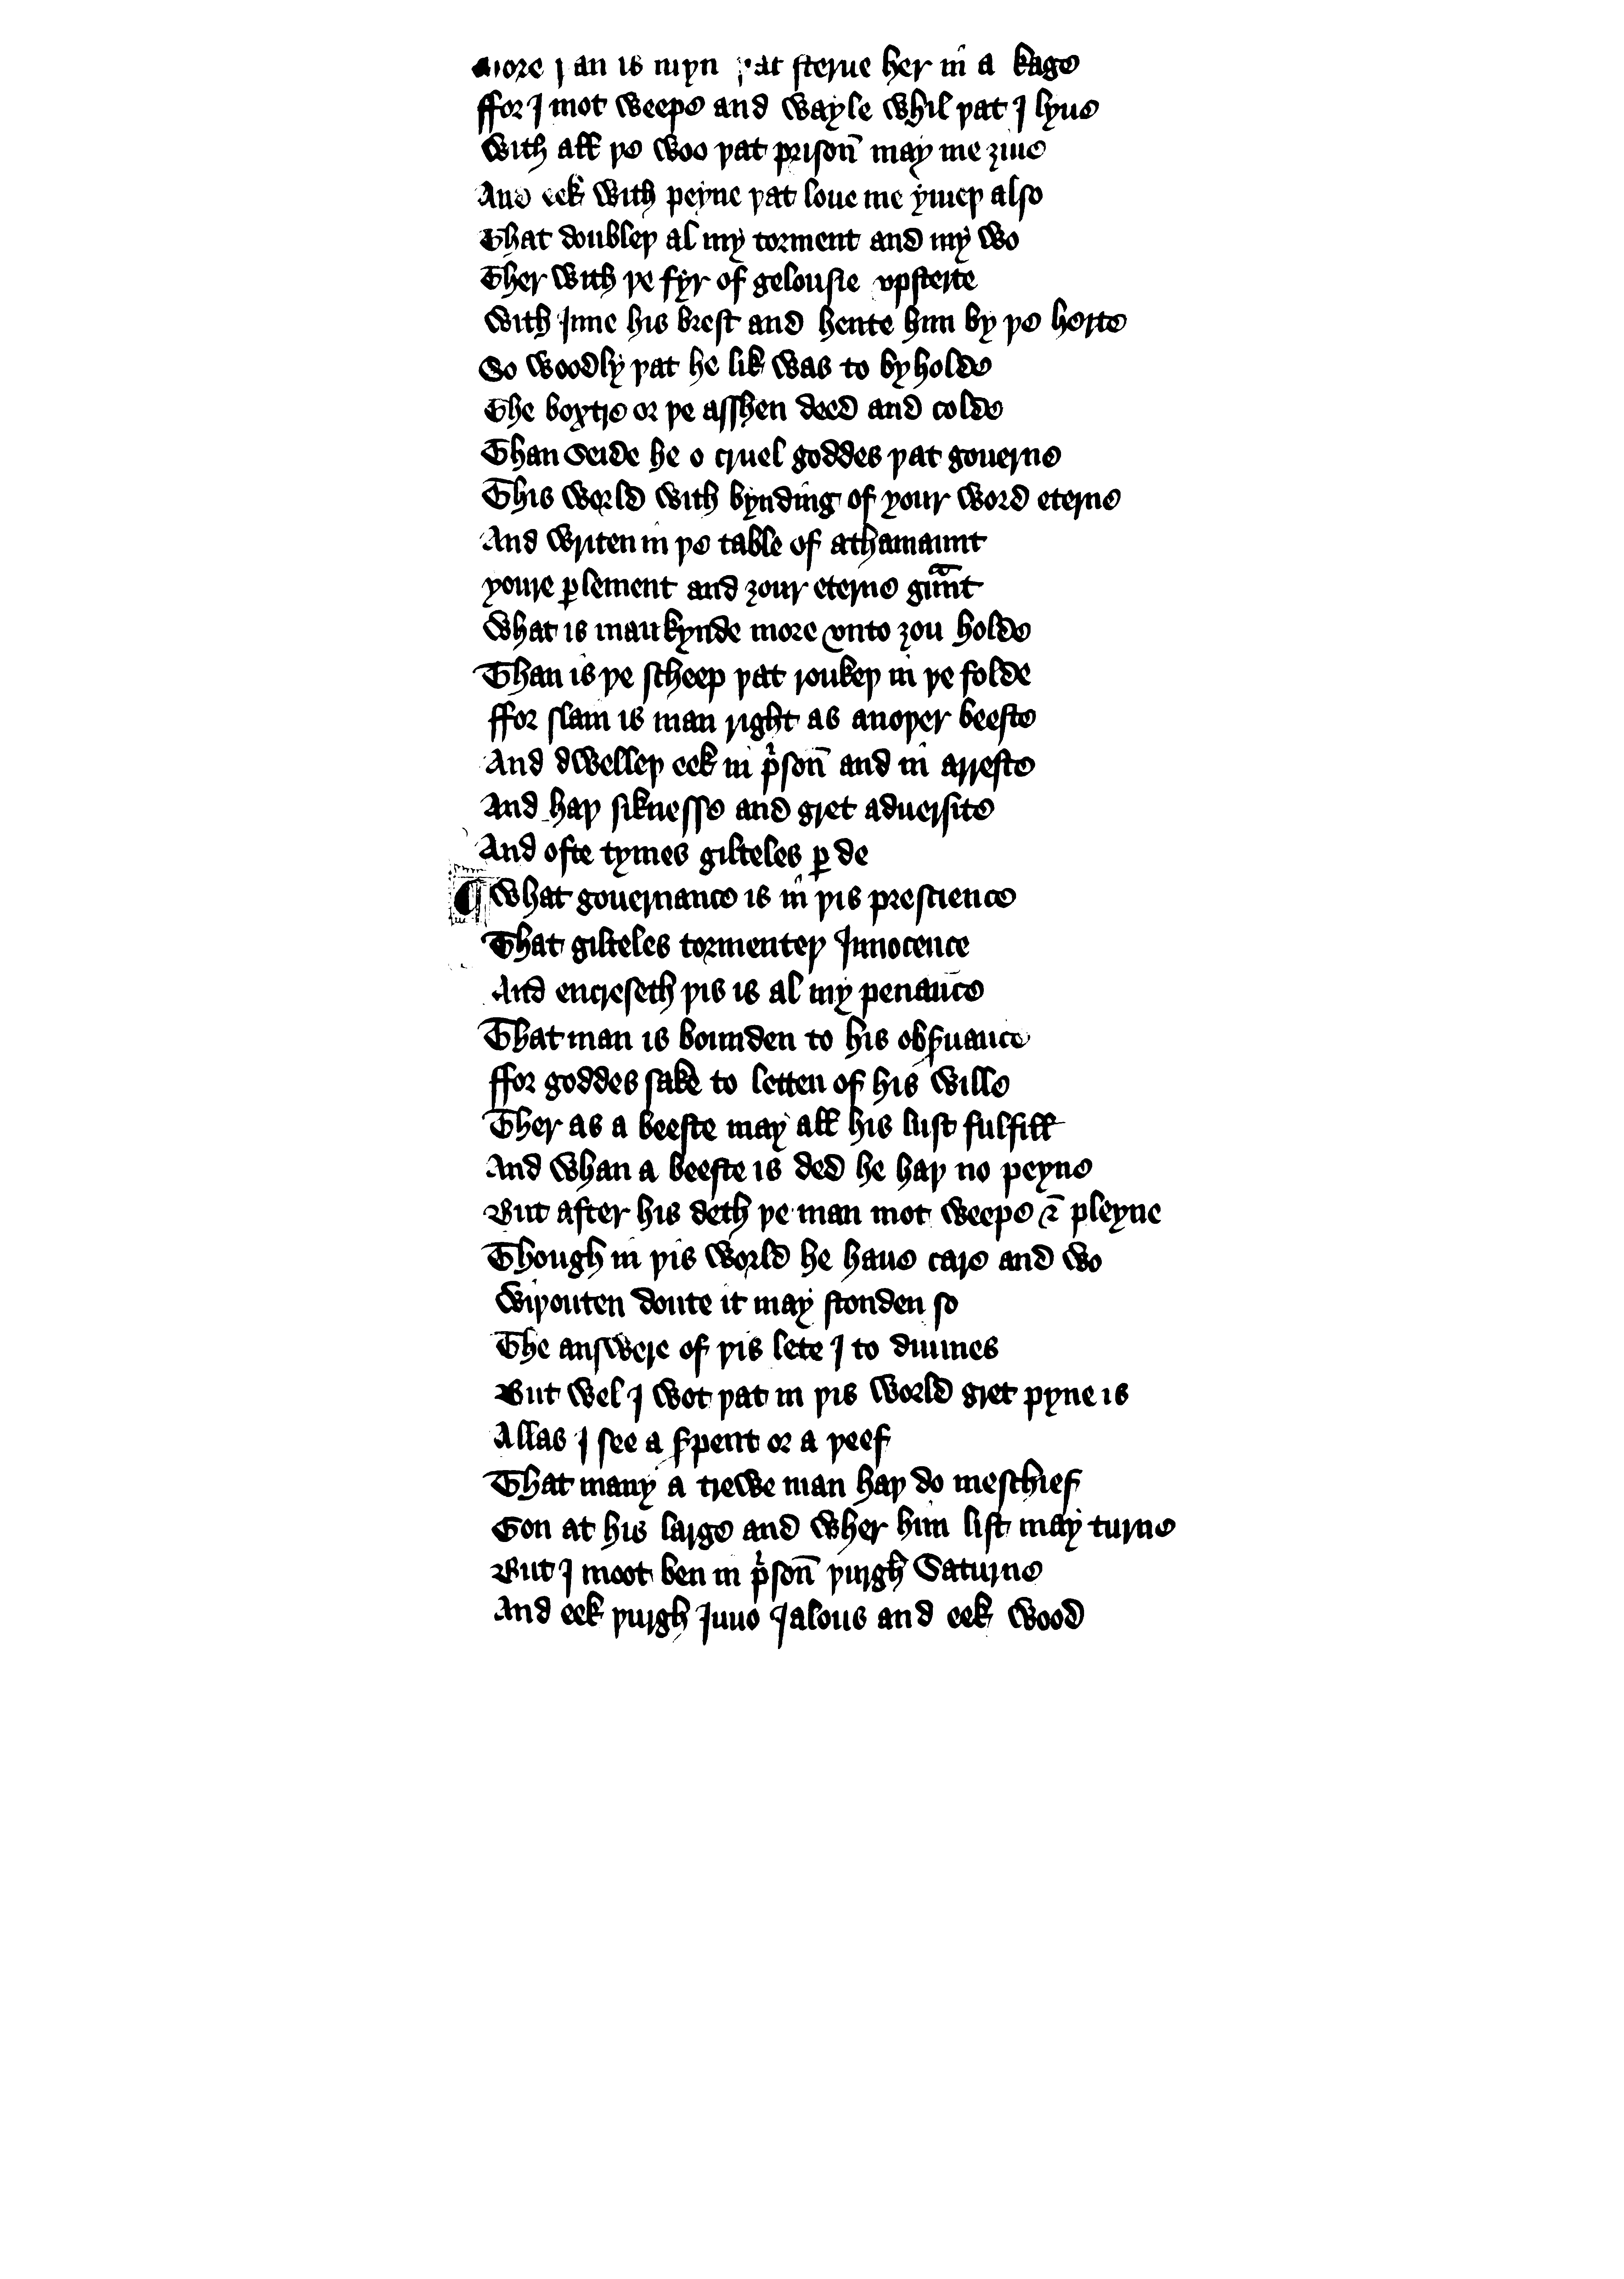 More þan is myn þat sterue her in a kage
ffor I mot weepe and wayle whil þat I lyue
With all þe woo þat prison̄ may me ȝiue
And eek with peyne þat loue me ȝiueþ also
That doubleþ al my torment and my wo
Ther with þe fyr of gelousie vpsterte
With Inne his brest and hente him by þe herte
So woodly þat he lik was to byholde
The boxtre or þe asshen deed and colde
Than seide he o cruel goddes þat gouerne
This world with bynding of your word eterne
And writen in þe table of athamaunt
youre ꝑlement and ȝour eterne gͣunt
What is mankynde more vnto ȝou holde
Than is þe scheep þat roukeþ in þe folde
ffor slain is man right as anoþer beeste
And dwelleþ eek in pͥson̄ and in arreste
And haþ siknesse and gret aduersite
And ofte tymes gilteles ꝑde
¶ What gouernance is in þis prescience
That gilteles tormenteþ Innocence
And encreseth þis is al my penaūce
That man is bounden to his obẜuance
ffor goddes sake to letten of his wille
Ther as a beeste may all his lust fulfill
And whan a beeste is ded he haþ no peyne
But after his deth þe man mot weepe ⁊ pleyne
Though in þis world he haue care and wo
Wiþouten doute it may stonden so
The answere of þis lete I to diuines
But wel I wot þat in þis world gret pyne is
Allas I see a ẜpent or a þeef
That many a trewe man haþ do meschief
Gon at his large and wher him list may turne
But I moot ben in pͥson̄ þurgh Saturne
And eek þurgh Iuno Ialous and eek wood